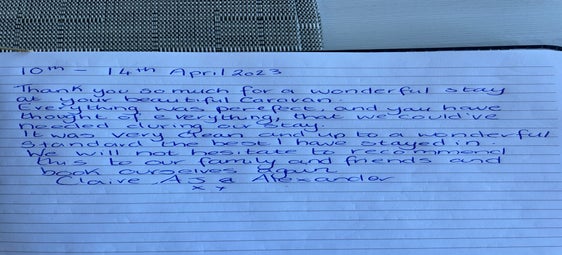 10th - 14th April 2023
Thank you so much for a wonderful stay
at your beautiful Caravan.
Everything was perefect, and you have
thought of everything, that we could've
needed during our stay.
It was very clean and up to a wonderful
standard the best I have stayed in.
We will not hesitate to recommend
this to our family and friends and
book ourselves again.
Claire, AJ & Alexander
x x